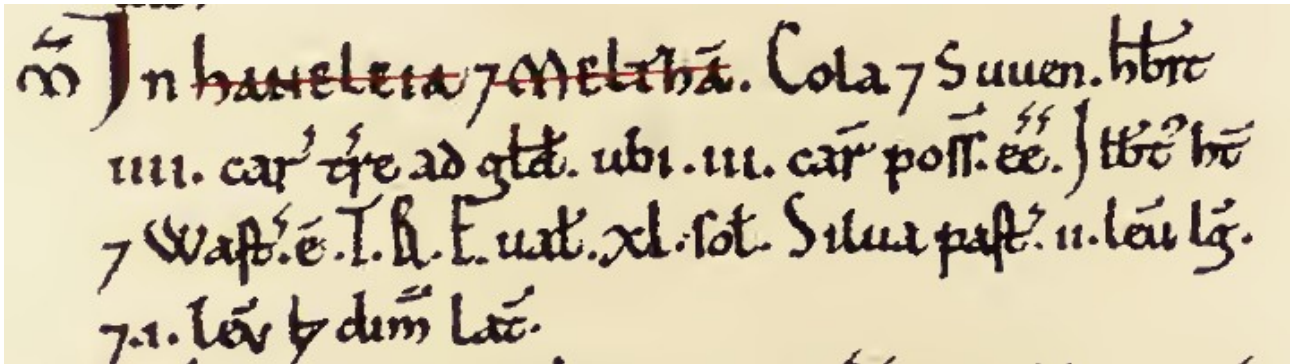 M̃ In haueleia ⁊ Meltha̅. Cola ⁊ Suuen. hb̅rt
iiii. car᾽ t̅re ad gld̅. ubi .iii. car̅ poss̅. e̅e̅. Ilb̅t᾽ ht̅
⁊ Wast᾽. e̅. T. R. E. ual̅. xl. sol̅. Silua past᾽. ii. leu̅ lg̅.
⁊ .i. leu̅ ⁊ dim̅ lat̅.